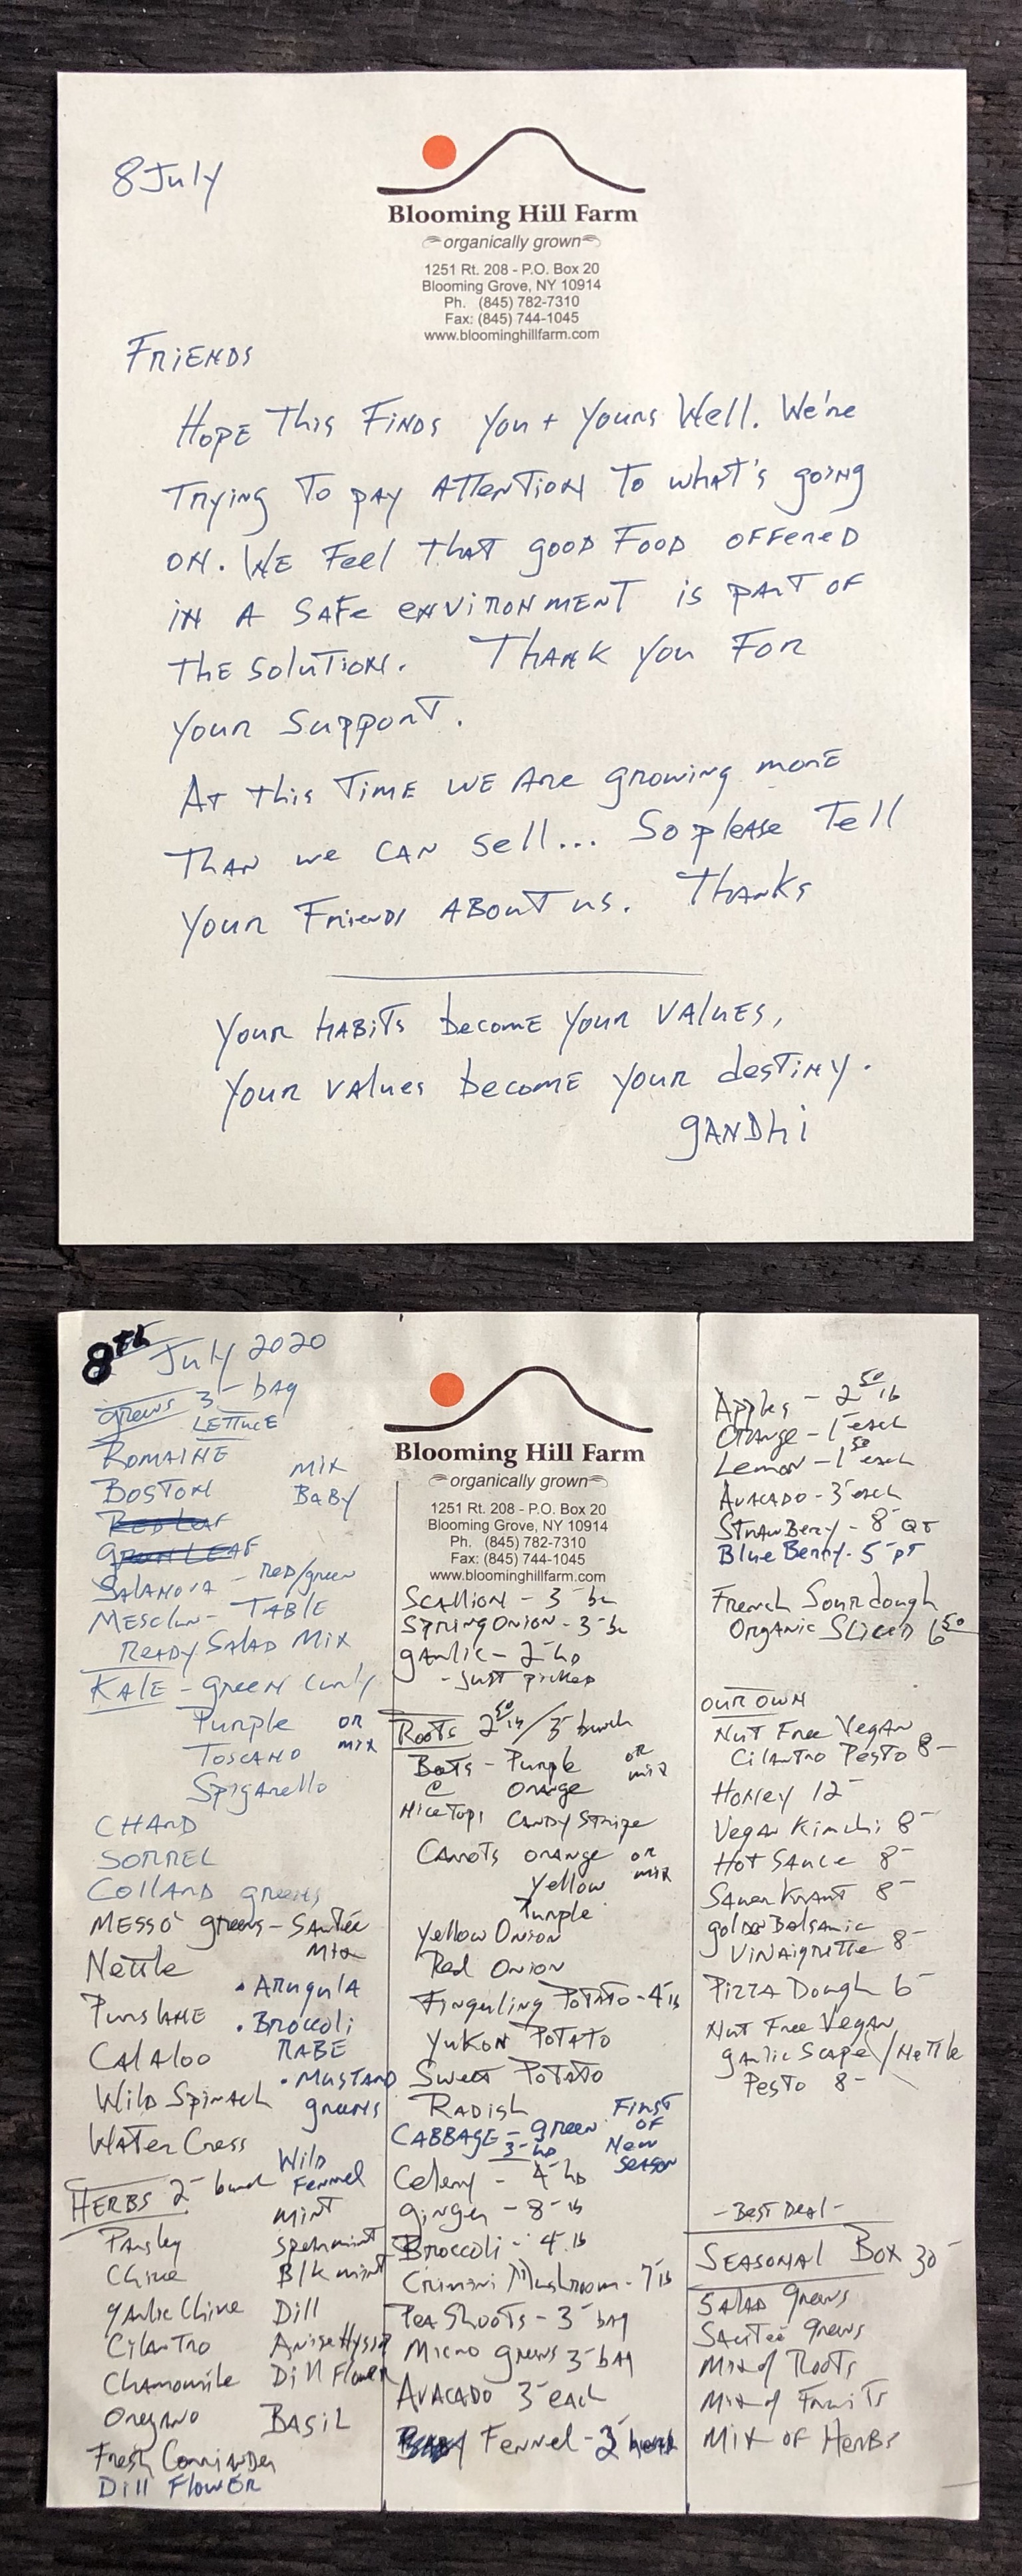 8 July
Blooming Hill Farm
organically grown
1251 Rt. 208 - P.O. Box 20
Blooming Grove, NY 10914
Ph. (845) 782-7310
Fax: (845) 744-1045
www.bloominghillfarm.com
FRIENDS
HOPE This FINDS you + yours Well. We're
Trying To pay ATTenTION To what's going
ON. WE Feel that good FOOD OFFereD
iN A SAFe eNVIRONMENT is part OF
THE SoluTION. THANK you FOR
your Support.
AT this Time WE Are growing more
THAN we CAN sell... So please Tell
your Friends ABouT us. Thanks
Your HABiTs become your VALUES,
your values become your destiny.
gANDhi
8th July 2020
greens 3- bag
LETTuCE
ROMAINE
mix
BOSTON
BaBy
Red LeaF
Green LEAF
SALANOVA - red/green
MESClun - TABLE
READY SalAD Mix
KALE - green curly
Purple or
TOSCANO mix
Spigarello
CHARD
SORREL
COLLARD greens
MESSO' greens - Sautée
Mix
Nettle
• Arugula
PurslANE
• Broccoli
RABE
CALAloo
• MUSTARD
greens
Wild Spinach
WATer Cress
Wild
Fennel
HERBS 2- bunch
mint
Parsley
spearmint
Chive
Blk mint
garlic Chive
Dill
CilANTRO
Anise Hyssop
Chamomile
Dill Flower
Oregano
BASiL
Fresh Coriander
Dill FlowER
Blooming Hill Farm
organically grown
1251 Rt. 208 - P.O. Box 20
Blooming Grove, NY 10914
Ph. (845) 782-7310
Fax: (845) 744-1045
www.bloominghillfarm.com
SCAllION - 3- bu
SPRING ONION - 3- bu
gArlic - 2- hD
- just picked
Roots 2 50 lb / 3- bunch
Beets - Purple or
mix
Orange
Nice Tops CANDy STripe
CArroTs orange or
Yellow mix
Purple
Yellow Onion
Red ONION
Fingerling PoTATo - 4 lb
YukoN PoTATo
Sweet PoTATo
RADISH
CABBAGE - green
3- hD
FirsT
OF
New
season
Celery - 4- hD
ginger - 8- lb
Broccoli - 4- lb
Crimini Mushroom - 7 lb
Pea Shoots - 3- bag
Micro greens 3- bag
AVACADO 3- each
Fennel - 3- head
Apples - 2 50 lb
Orange - 1- each
Lemon - 1 50 each
Avacado - 3- each
STrawBery - 8- QT
Blue Berry - 5- pT
French Sourdough
Organic Sliced 6 50
OUR OWN
Nut Free Vegan
CilANTRO Pesto 8-
Honey 12-
Vegan Kimchi 8-
HoT SAuce 8-
Sauer KrauT 8-
golden Balsamic
VinAigreTTe 8-
Pizza Dough 6-
Nut Free Vegan
gArlic Scape/Nettle
PesTo 8-
- BesT DeAl -
SEASONAL Box 30-
SALAD greens
SAuTée greens
Mix of RooTs
Mix of FruiTs
Mix OF HerBs